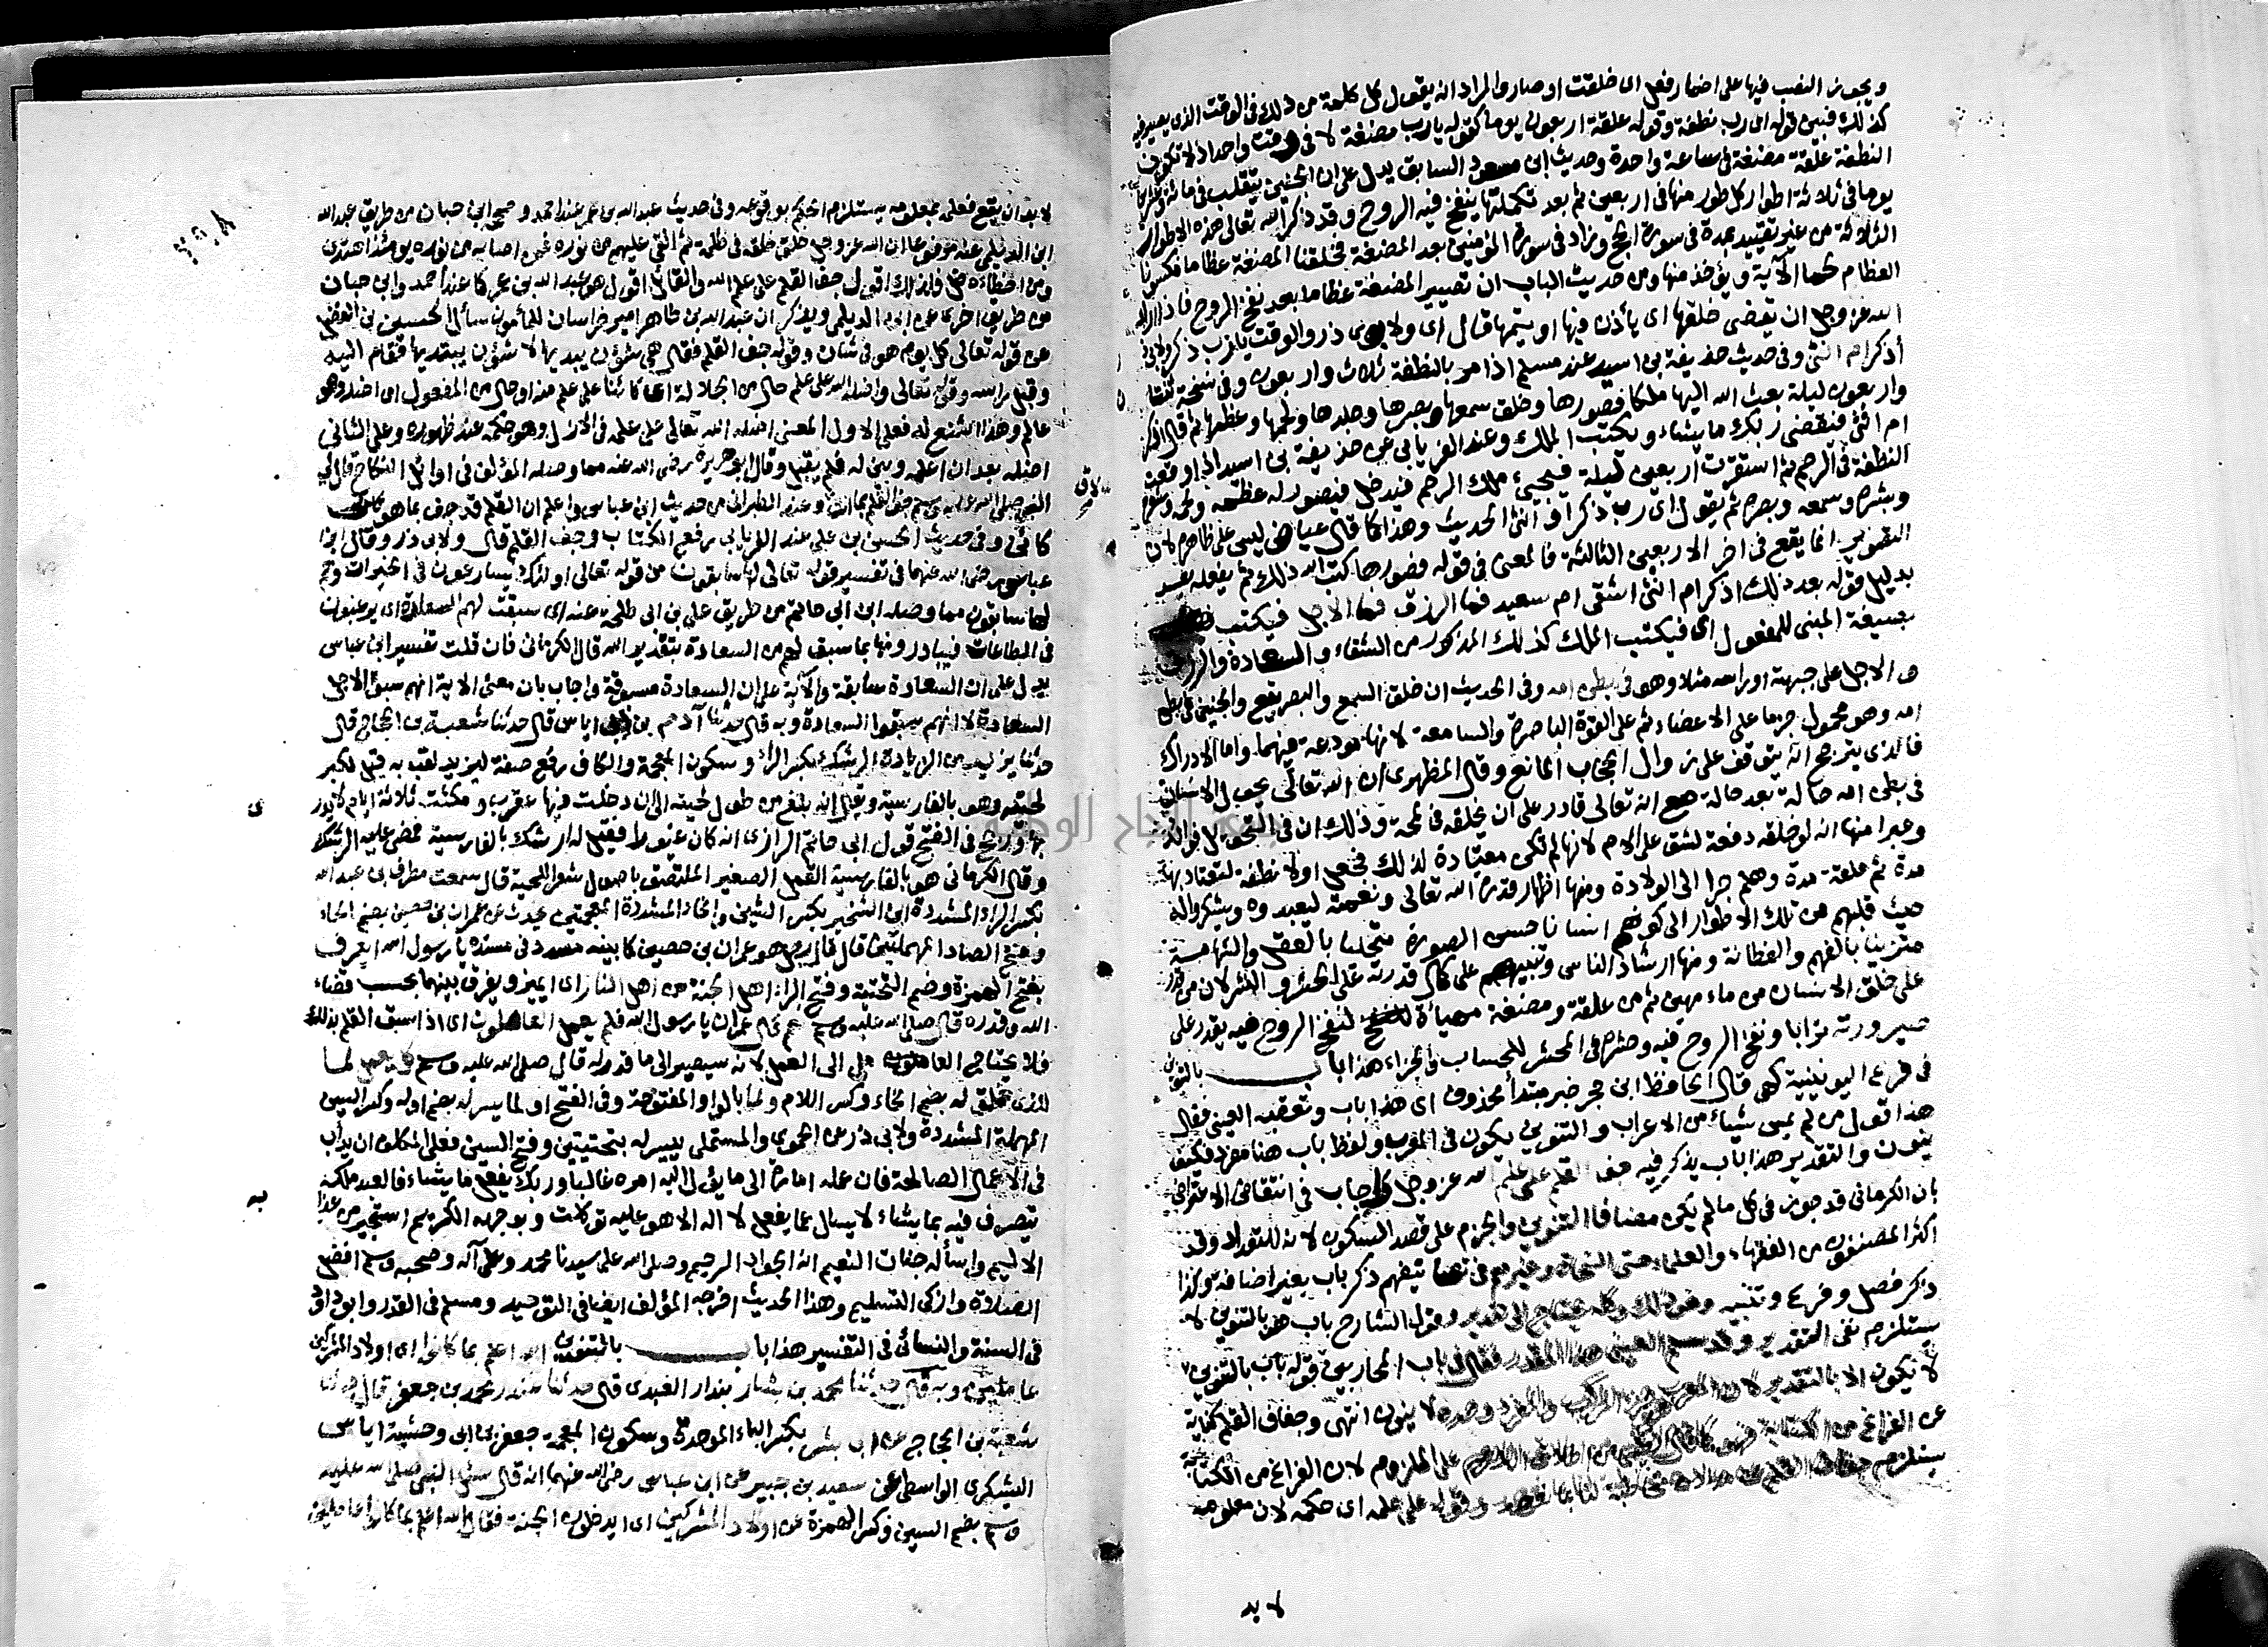 ويجوز النصب فيها على اضمار فعل اى خلقت او صار والمراد انه يقول كل كلمة من ذلك فى الوقت الذى يصير فيه
كذلك فبين قوله اى رب نطفة وقوله علقة اربعون يوما كقوله يا رب مضغة لا فى وقت واحد اذ لا تكون
النطفة علقة مضغة فى ساعة واحدة وحديث ابن مسعود السابق يدل على ان الجنين يتقلب فى مائة وعشرين
يوما فى ثلاثة اطوار كل طور منها فى اربعين ثم بعد تكملتها ينفخ فيه الروح وقد ذكر الله تعالى هذه الاطوار
الثلاثة من غير تقييد بمدة فى سورة الحج وزاد فى سورة المؤمنين بعد المضغة فخلقنا المضغة عظاما فكسونا
العظام لحما الآية ويؤخذ منها ومن حديث الباب ان تصيير المضغة عظاما بعد نفخ الروح فاذا اراد
الله عز وجل ان يقضى خلقها اى يأذن فيها او يتمها قال اى ولابى ذر والوقت يا رب ذكر ولابى
أذكر ام انثى وفى حديث حذيفة بن اسيد عند مسلم اذا مر بالنطفة ثلاث واربعون وفى نسخة ثنتان
واربعون ليلة بعث الله اليها ملكا فصورها وخلق سمعها وبصرها وجلدها ولحمها وعظمها ثم قال اذكر
ام انثى فيقضى ربك ما يشاء ويكتب الملك وعند الفريابى عن حذيفة بن اسيد اذا وقعت
النطفة فى الرحم ثم استقرت اربعين ليلة فيجىء ملك الرحم فيدخل فيصور له عظمه ولحمه وشعره
وبشره وسمعه وبصره ثم يقول اى رب ذكر او انثى الحديث وهذا كما قال عياض ليس على ظاهره لان
التصوير انما يقع فى اخر الاربعين الثالثة فالمعنى فى قوله فصورها كتب الله ذلك ثم يفعله بعد
بدليل قوله بعد ذلك اذكر ام انثى اشقى ام سعيد فما الرزق فما الاجل فيكتب
بصيغة المبنى للمفعول اى فيكتب الملك كذلك المذكور من الشقاء والسعادة والرزق
والاجل على جبهته او راسه مثلا وهو فى بطن امه وفى الحديث ان خلق السمع والبصر يقع والجنين فى بطن
امه وهو محمول جزما على الاعضاء ثم على القوة الباصرة والسامعة لانها مودعة فيهما واما الادراك
فالذى يترجح انه يتوقف على زوال الحجاب المانع وقال المظهرى ان الله تعالى يحول الانسان
فى بطن امه حالة بعد حالة مع انه تعالى قادر على ان يخلقه فى لمحة وذلك ان فى التحويل فوائد
وعبرا منها انه لو خلقه دفعة لشق على الام لانها لم تكن معتادة لذلك فجعل اولا نطفة لتعتاد بها
مدة ثم علقة مدة وهلم جرا الى الولادة ومنها اظهار قدرة الله تعالى ونعمته ليعبدوه ويشكروا له
حيث قلبهم من تلك الاطوار الى كونهم انسانا حسن الصورة متحليا بالعقل والشهامة
متزينا بالفهم والفطانة ومنها ارشاد الناس وتنبيههم على كمال قدرته على الحشر والنشر لان من قدر
على خلق الانسان من ماء مهين ثم من علقة ومضغة مهيأة لنفخ الروح فيه يقدر على
صيرورته ترابا ونفخ الروح فيه وحشره فى المحشر للحساب والجزاء هذا باب بالتنوين
فى فرع اليونينية كهى قال الحافظ ابن حجر خبر مبتدأ محذوف اى هذا باب وتعقبه العينى فقال
هذا قول من لم يمس شيئا من الاعراب والتنوين يكون فى المعرب ولفظ باب هنا مفرد فكيف
ينون والتقدير هذا باب يذكر فيه جف القلم على علم الله عز وجل واجاب فى انتقاض الاعتراض
بان الكرمانى قد جوز فى كل ما لم يكن مضافا التنوين والجزم على قصد السكون لانه للتعداد وقد
اكثر المصنفون من الفقهاء والعلماء حتى النحاة وغيرهم فى تصانيفهم ذكر باب بغير اضافة وكذا
ذكر فصل وفرع وتنبيه ونحو ذلك وكله يحتاج الى تقدير وقول الشارح باب هو بالتنوين لا
يستلزم نفى التقدير وقد سلم العينى هذا المقدر فقال فى باب المحاربين قوله باب بالتنوين
لا يكون الا بالتقدير لان المعرب جزء المركب والمفرد وحده لا ينون انتهى وجفاف القلم كناية
عن الفراغ من الكتابة فهو كما قال الطيبى من اطلاق اللازم على الملزوم لان الفراغ من الكتابة
يستلزم جفاف القلم عن مداده مخاطبة لنا بما نعهد وقوله على علمه اى حكمه لان معلومه
لا بد
لا بد ان يقع فعلمه بمعلومه يستلزم الحكم بوقوعه وفى حديث عبد الله بن عمر عند احمد وصحيح ابن حبان من طريق عبد الله
ابن الديلمى عنه مرفوعا ان الله عز وجل خلق خلقه فى ظلمة ثم القى عليهم من نوره فمن اصابه من نوره يومئذ اهتدى
ومن اخطاءه ضل فلذلك اقول جف القلم على علم الله والقائل اقول هو عبد الله بن عمر كما عند احمد وابن حبان
من طريق اخرى عن ابن الديلمى ويذكر ان عبد الله بن طاهر امير خراسان للمأمون سأل الحسين بن الفضل
عن قوله تعالى كل يوم هو فى شان وقوله جف القلم فقال هى شؤون يبديها لا شؤون يبتديها فقام اليه
وقبل راسه وقوله تعالى واضله الله على علم حال من الجلالة اى كائنا على علم منه او حال من المفعول اى اضله وهو
عالم وهذا اشنع له فعلى الاول المعنى اضله الله تعالى على علمه فى الازل وهو حكمه عند ظهوره وعلى الثانى
اضله بعد ان اعلمه وبين له فلم يقبل وقال ابو هريرة رضى الله عنه مما وصله المؤلف فى اوائل النكاح قال لى
النبى صلى الله عليه وسلم جف القلم بما انت وعند الطبرانى من حديث ابن عباس واعلم ان القلم قد جف بما هو
كائن وفى حديث الحسن بن على عند الفريابى رفع الكتاب وجف القلم قال ولابى ذر وقال ابن
عباس رضى الله عنهما فى تفسير قوله تعالى لها سابقون من قوله تعالى اولئك يسارعون فى الخيرات وهم
لها سابقون مما وصله ابن ابى حاتم من طريق على بن ابى طلحة عنه اى سبقت لهم السعادة اى يرغبون
فى الطاعات فيبادرونها بما سبق لهم من السعادة بتقدير الله قال الكرمانى فان قلت تفسير ابن عباس
يدل على ان السعادة سابقة والآية على ان السعادة مسبوقة واجاب بان معنى الاية انهم سبقوا لاجل
السعادة لا انهم سبقوا السعادة وبه قال حدثنا آدم بن ابى اياس قال حدثنا شعبة بن الحجاج قال
حدثنا يزيد من الزيادة الرشك بكسر الراء وسكون المعجمة والكاف رفع صفة ليزيد لقب به قيل لكبر
لحيته وهو بالفارسية وقيل انه بلغ من طول لحيته الى ان دخلت فيها عقرب ومكثت ثلاثة ايام لا يدرى
بها ورجح فى الفتح قول ابى حاتم الرازى انه كان غيورا فقيل له ارشك بالفارسية فمضى عليه الرشك
وقال الكرمانى هو بالفارسية القمل الصغير الملتصق باصول شعر اللحية قال سمعت مطرف بن عبد الله
بكسر الراء المشددة ابن الشخير بكسر الشين والخاء المشددة المعجمتين يحدث عن عمران بن حصين بضم الحاء
وفتح الصاد المهملتين قال قال رجل هو عمران بن حصين كما بينه مسدد فى مسنده يا رسول الله ايعرف
بفتح الهمزة وضم التحتية وفتح الراء اهل الجنة من اهل النار اى ايميز ويفرق بينهما بحسب قضاء
الله وقدره قال صلى الله عليه وسلم نعم قال عمران يا رسول الله فلم يعمل العاملون اى اذا سبق القلم بذلك
فلا يحتاج العامل الى العمل لانه سيصير الى ما قدر له قال صلى الله عليه وسلم كل يعمل لما
للذى خلق له بضم الخاء وكسر اللام ولما بالواو المفتوحة وفى الفتح او لما يسر له بضم اوله وكسر السين
المهملة المشددة ولابى ذر عن الحموى والمستملى ييسر له بتحتيتين وفتح السين فعلى المكلف ان يدأب
فى الاعمال الصالحة فان عمله امارة الى ما يؤل اليه امره غالبا وربك يفعل ما يشاء فالعبد ملكه
يتصرف فيه بما يشاء لا يسال عما يفعل لا اله الا هو عليه توكلت وبوجهه الكريم استجير من عذابه
الاليم واسأله جنات النعيم انه الجواد الرحيم وصلى الله على سيدنا محمد وعلى آله وصحبه وسلم افضل
الصلاة وازكى التسليم وهذا الحديث اخرجه المؤلف ايضا فى التوحيد ومسلم فى القدر وابو داود
فى السنة والنسائى فى التفسير هذا باب بالتنوين الله اعلم بما كانوا اى اولاد المشركين
عاملين وبه قال حدثنا محمد بن بشار بندار العبدى قال حدثنا غندر محمد بن جعفر قال حدثنا
شعبة بن الحجاج عن ابى بشر بكسر الباء الموحدة وسكون المعجمة جعفر بن ابى وحشية اياس
اليشكرى الواسطى عن سعيد بن جبير عن ابن عباس رضى الله عنهما انه قال سئل النبى صلى الله عليه
وسلم بضم السين وكسر الهمزة عن اولاد المشركين اى ايدخلون الجنة فقال الله اعلم بما كانوا عاملين